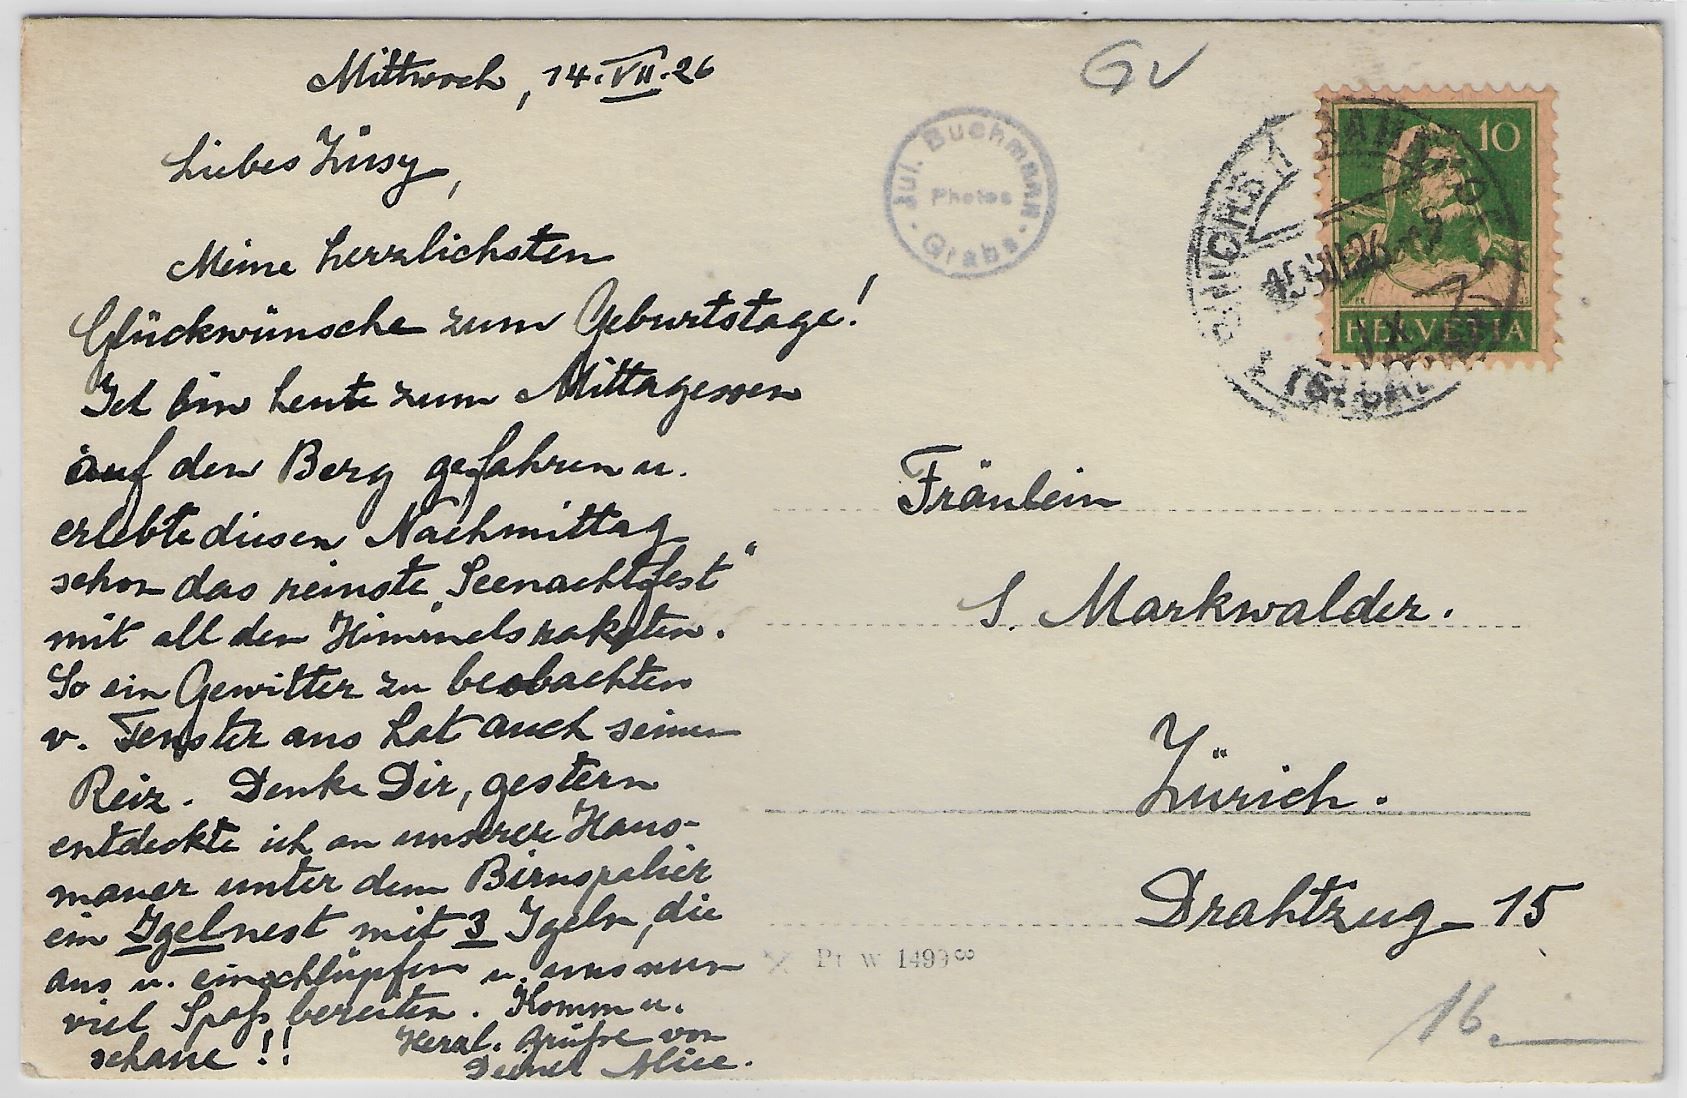 Mittwoch, 14.VII.26
Liebes Züsy,
Meine herzlichsten
Glückwünsche zum Geburtstage!
Ich bin heute zum Mittagessen
auf den Berg gefahren u.
erlebte diesen Nachmittag
schon das reinste "Seenachtfest"
mit all den Himmelsraketen.
So ein Gewitter zu beobachten
v. Fenster aus hat auch seinen
Reiz. Denke Dir, gestern
entdeckte ich an unserer Haus-
mauer unter dem Birnspalier
ein Igelnest mit 3 Igeln, die
aus u. einschlüpfen u. uns nun
viel Spaß bereiten. Komm u.
schaue!!
Herzl. Grüße von
Deiner Alice.
GV
Jul. Buchmann
Photos
Grabs
10
HELVETIA
BUCHS
BAHNHOF
(ST. GALLEN)
Fräulein
S. Markwalder.
Zürich.
Drahtzug 15
Pr w 1499
16.